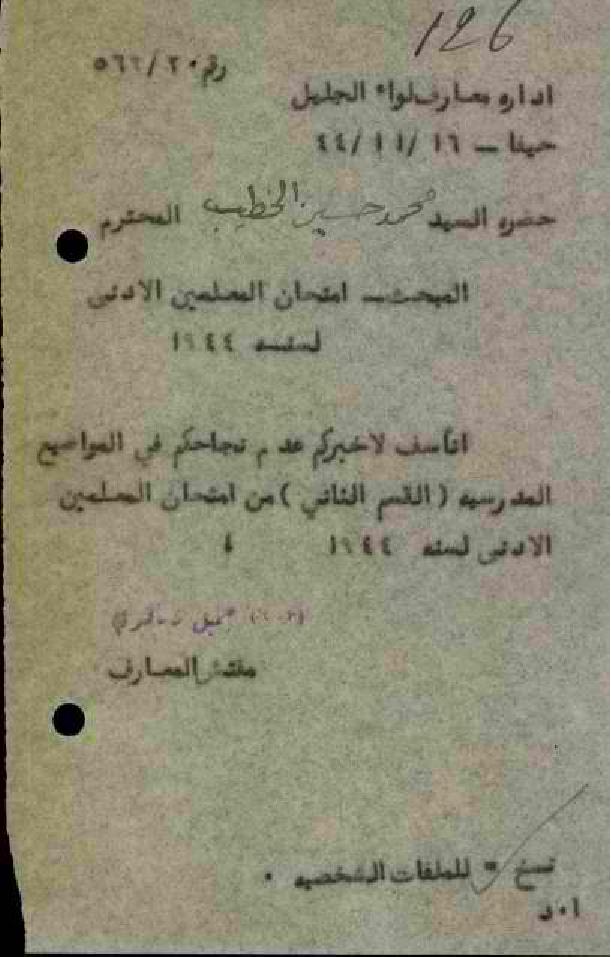 126
رقم ٥٦٢/٢٠
اداره معارف لواء الجليل
حيفا — ١٦ /١١ /٤٤
حضره السيد محمد حسين الخطيب المحترم
المبحث — امتحان المعلمين الادنى
لسنه ١٩٤٤
اتأسف لاخبركم عدم نجاحكم في المواضيع
المدرسيه ( القسم الثاني ) من امتحان المعلمين
الادنى لسنه ١٩٤٤ .
جميل
مفتش المعارف
نسخ = للملفات الشخصيه .
ا٠د